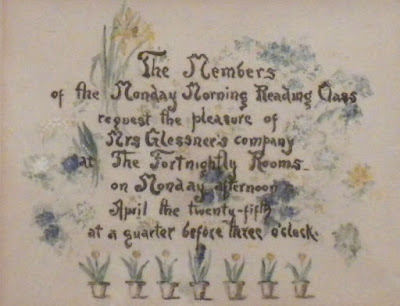 The Members
of the Monday Morning Reading Class
request the pleasure of
Mrs Glessner's company
at The Fortnightly Rooms
on Monday afternoon
April the twenty-fifth
at a quarter before three o'clock.